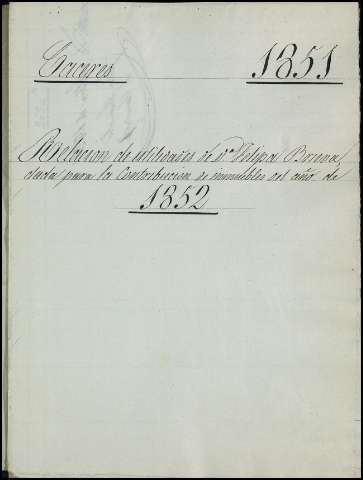 Caceres 1851
Relacion de utilidades de Dª Felipa
dada para la Contribucion de inmuebles del año de
1852